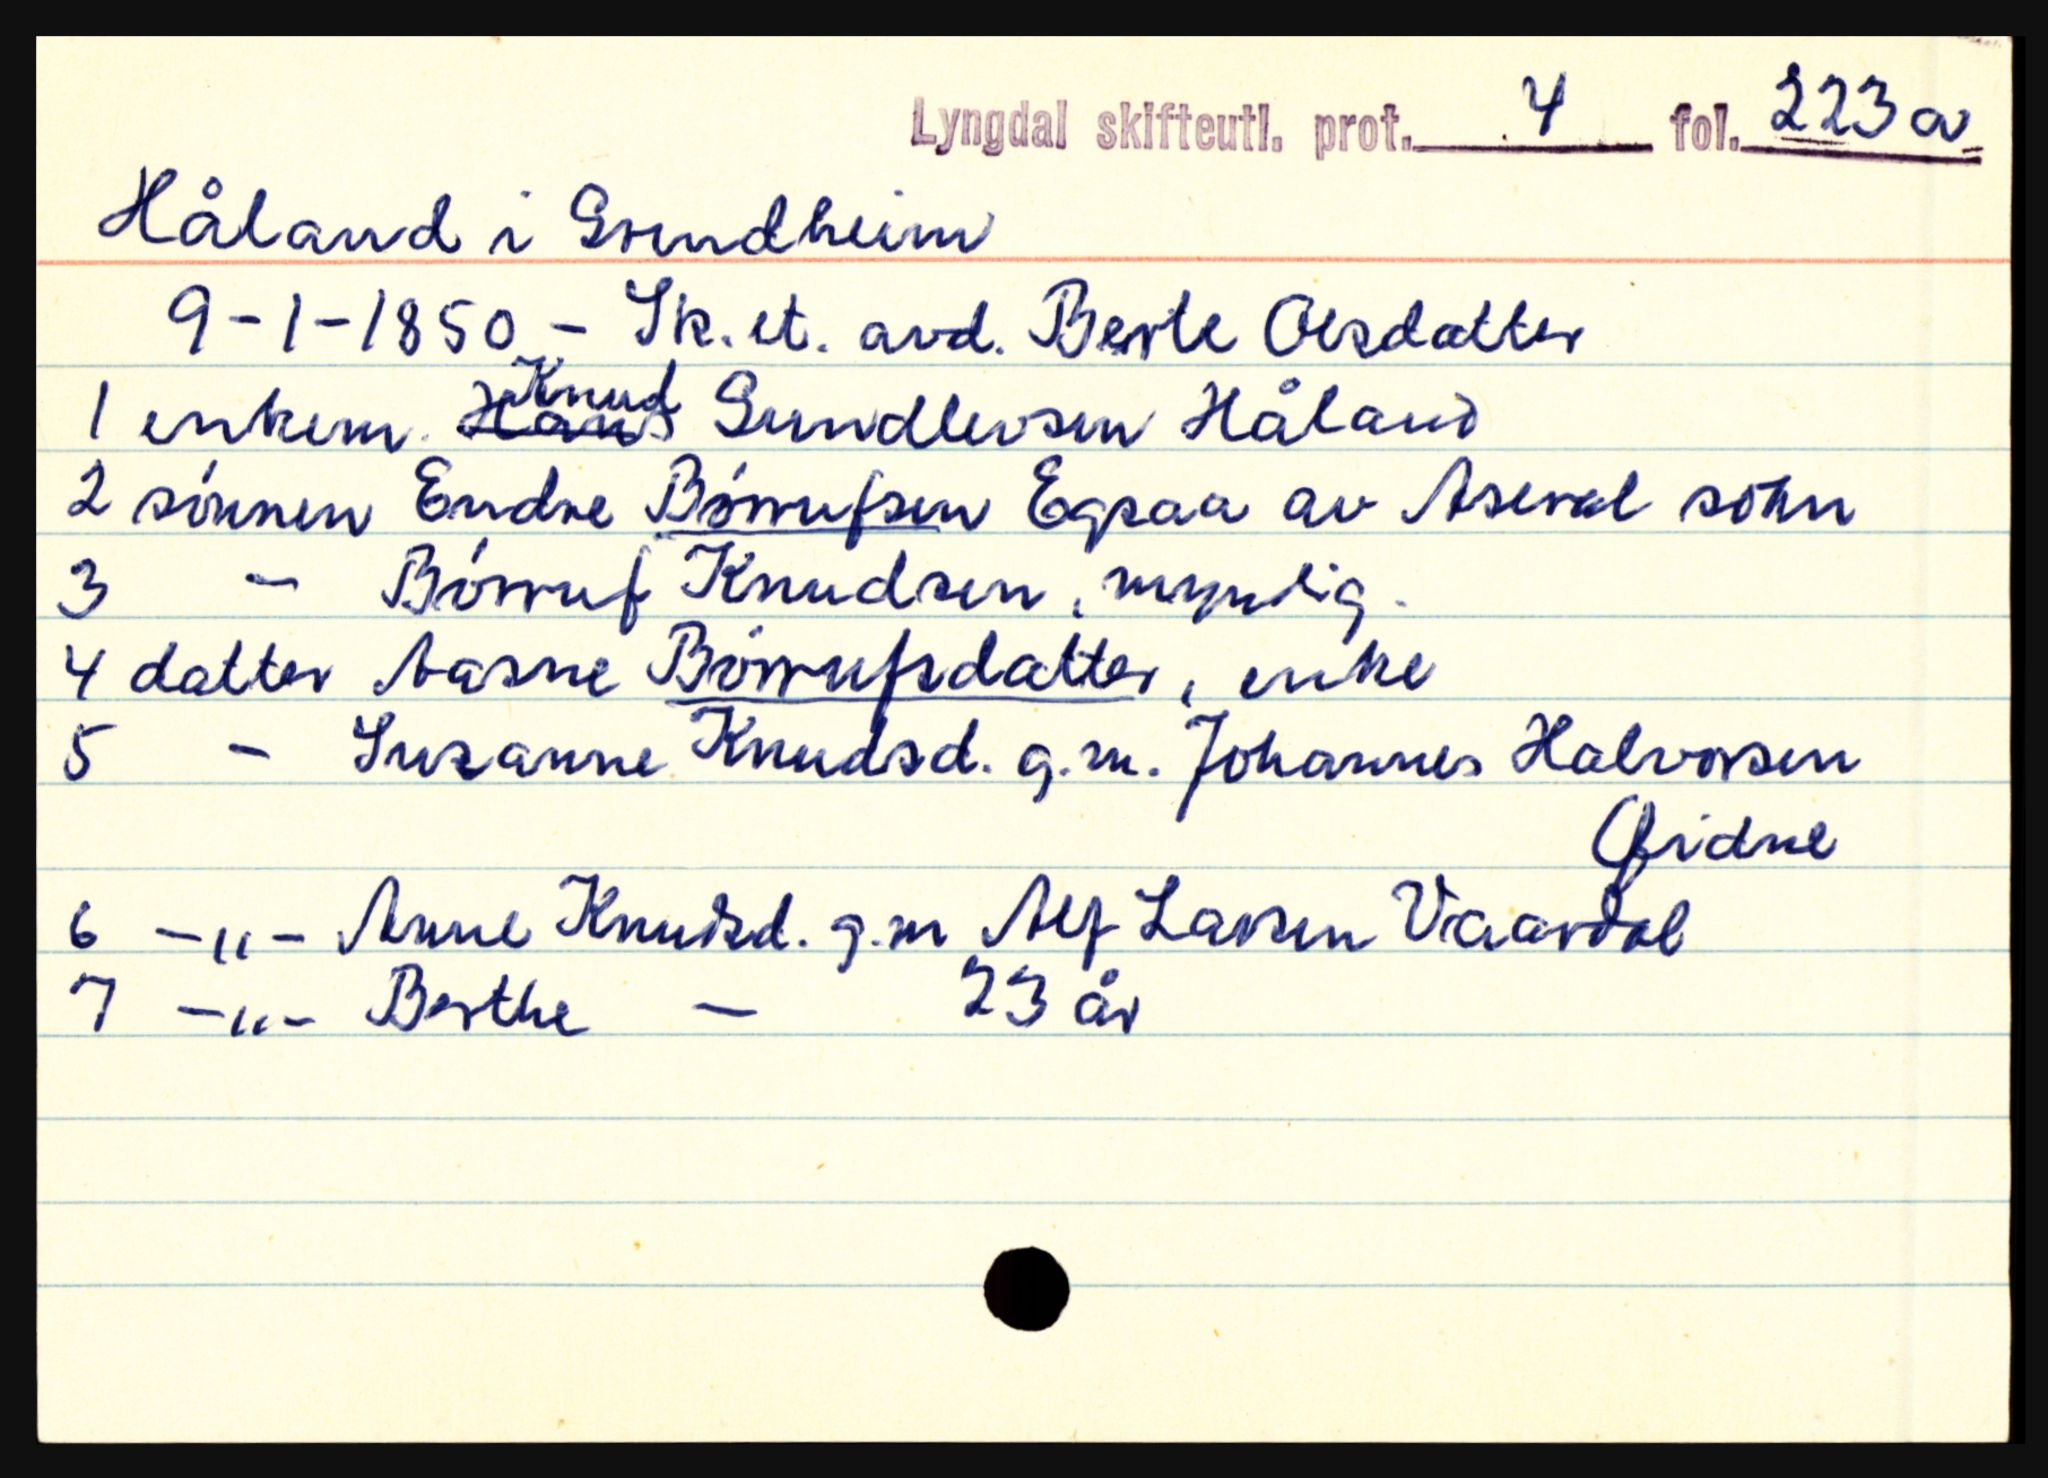 Lyngdal skifteutl. prot. 4 fol. 223a
Håland i Grindheim
9-1-1850 - Sk. et. avd. Berte Olsdatter
1 enkem. Hans Knud Gundleusen Håland
2 sönnen Endre Börrufsen Egsaa av Aseral sohn
3 - Börruf Knudsen, myndig.
4 datter Aasne Börrufsdatter, enke
5 - Susanne Knudsd. g.m. Johannes Halvorsen
Qvidne
6 -"- Anne Knudsd. g.m Alf Larsen Vaardal
7 -"- Berthe - 23 år